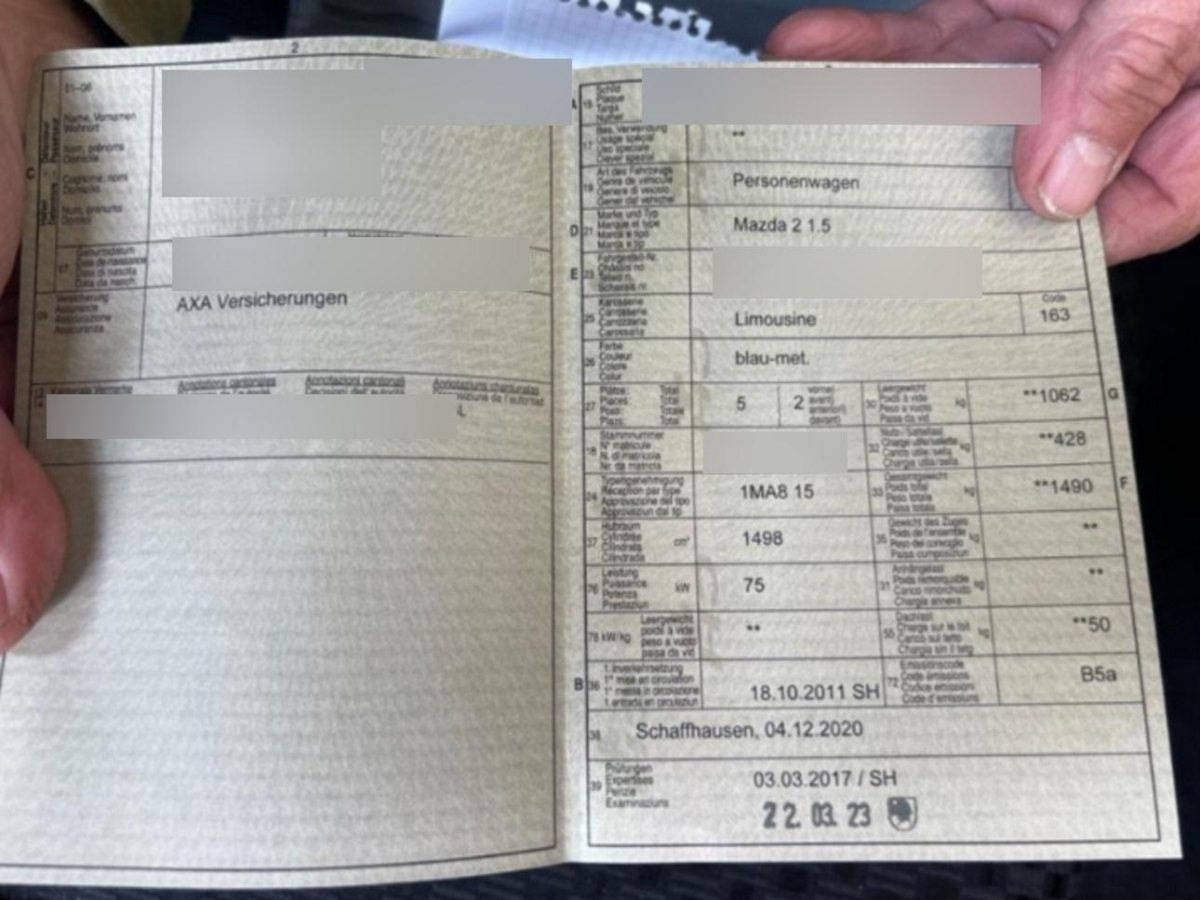 2
01-06
Name, Vornamen
Wohnort
Nom, prénoms
Domicile
Cognome, nomi
Domicilio
Num, prenums
C
07
Geburtsdatum
Date de naissance
Data di nascita
Data da nasch.
09
Versicherung
Assurance
Assicurazione
Assicuranza
AXA Versicherungen
Annotations cantonales
Annotazioni cantonali
Annotaziuns chantunalas
A 15
Schild
Plaque
Targa
Numer
17
Bes. Verwendung
Usage spécial
Uso speciale
Diever spezial
**
19
Art des Fahrzeugs
Genre de véhicule
Genere di veicolo
Gener dal vehichel
Personenwagen
D 21
Marke und Typ
Marque et type
Marca e tipo
Marca e tip
Mazda 2 1.5
E 23
Fahrgestell-Nr.
Châssis no
Telaio n.
Schassis nr.
25
Karosserie
Carrosserie
Carrozzeria
Carossaria
Limousine
Code
163
26
Farbe
Couleur
Colore
Colur
blau-met.
27
Plätze: Total
Places: Total
Posti: Totale
Plazs: Total
5
2
vorne)
avant)
anteriori)
davant)
30
Leergewicht
Poids à vide
Peso a vuoto
Paisa da vid
kg
**1062
G
18
Stammnummer
N° matricule
N. di matricola
Nr. da matricla
32
Nutz-/Sattellast
Charge utile/sellette
Carico utile/sella
Chargia utila/sella
kg
**428
24
Typengenehmigung
Réception par type
Approvazione del tipo
Approvaziun dal tip
1MA8 15
33
Gesamtgewicht
Poids total
Peso totale
Paisa totala
kg
**1490
F
37
Hubraum
Cylindrée
Cilindrata
Cilindrada
cm³
1498
35
Gewicht des Zuges
Poids de l'ensemble
Peso del convoglio
Paisa cumposiziun
kg
**
76
Leistung
Puissance
Potenza
Prestaziun
kW
75
31
Anhängelast
Poids remorquable
Carico rimorchiabile
Chargia annexa
kg
**
78 kW/kg
Leergewicht
poids à vide
peso a vuoto
paisa da vid
**
55
Dachlast
Charge sur le toit
Carico sul tetto
Chargia sin il tetg
kg
**50
B 36
1. Inverkehrsetzung
1re mise en circulation
1a messa in circolazione
1. entrada en circulaziun
18.10.2011 SH
72
Emissionscode
Code émissions
Codice emissioni
Code d'emissiuns
B5a
38
Schaffhausen, 04.12.2020
39
Prüfungen
Expertises
Perizie
Examinaziuns
03.03.2017 / SH
22. 03. 23